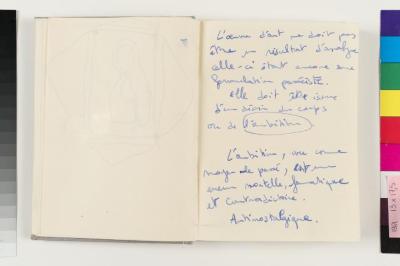 L'œuvre d'art ne doit pas
être un résultat d'analyse
celle-ci étant encore une
formulation passéiste.
Elle doit être issue
d'un désir du corps
ou de l'intuition
L'intuition, vue comme
de passé, est une
mortelle, fanatique
et contradictoire.
Antinostalgique.
13 x 17,5